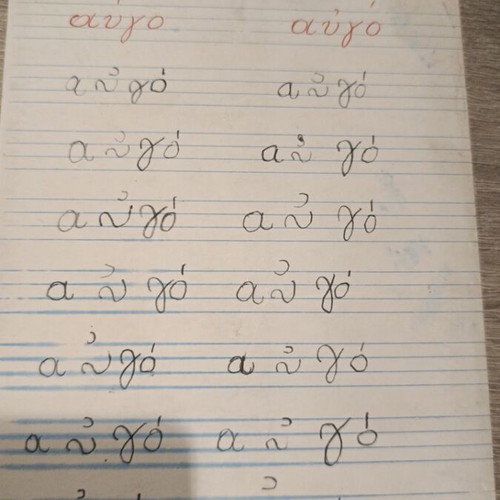 αὐγό αὐγό
αὐγό αὐγό
αὐγό αὐγό
αὐγό αὐγό
αὐγό αὐγό
αὐγό αὐγό
αὐγό αὐγό